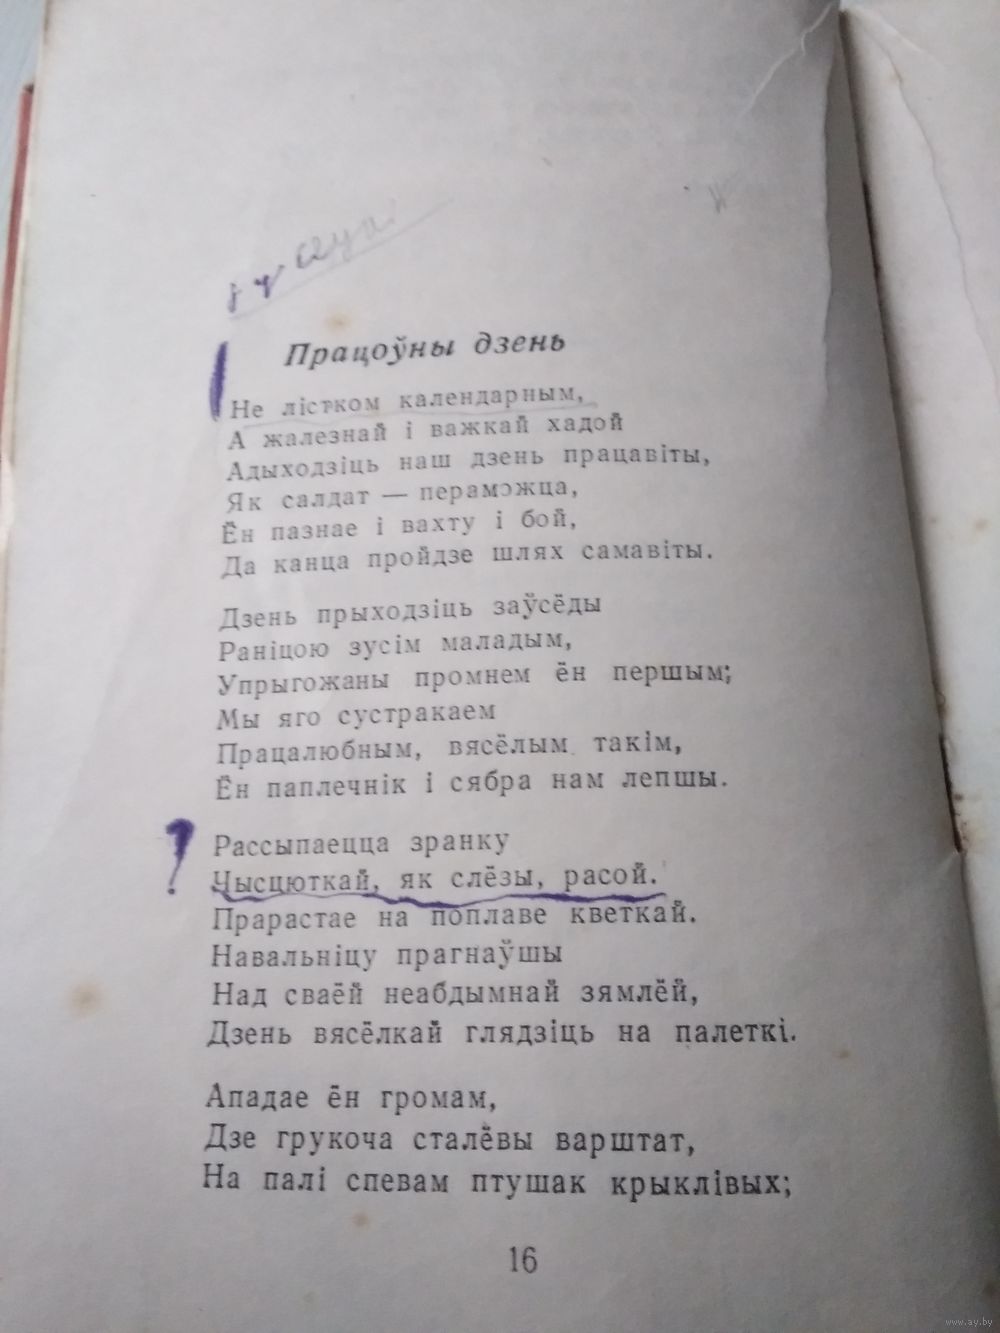 Працоўны дзень
Не лістком календарным,
А жалезнай і важкай хадой
Адыходзіць наш дзень працавіты,
Як салдат — пераможца,
Ён пазнае і вахту і бой,
Да канца пройдзе шлях самавіты.
Дзень прыходзіць заўсёды
Раніцою зусім маладым,
Упрыгожаны промнем ён першым;
Мы яго сустракаем
Працалюбным, вясёлым такім,
Ён паплечнік і сябра нам лепшы.
?
Рассыпаецца зранку
Чысцюткай, як слёзы, расой.
Прарастае на поплаве кветкай.
Навальніцу прагнаўшы
Над сваёй неабдымнай зямлёй,
Дзень вясёлкай глядзіць на палеткі.
Ападае ён громам,
Дзе грукоча сталёвы варштат,
На палі спевам птушак крыклівых;
16
www.ay.by